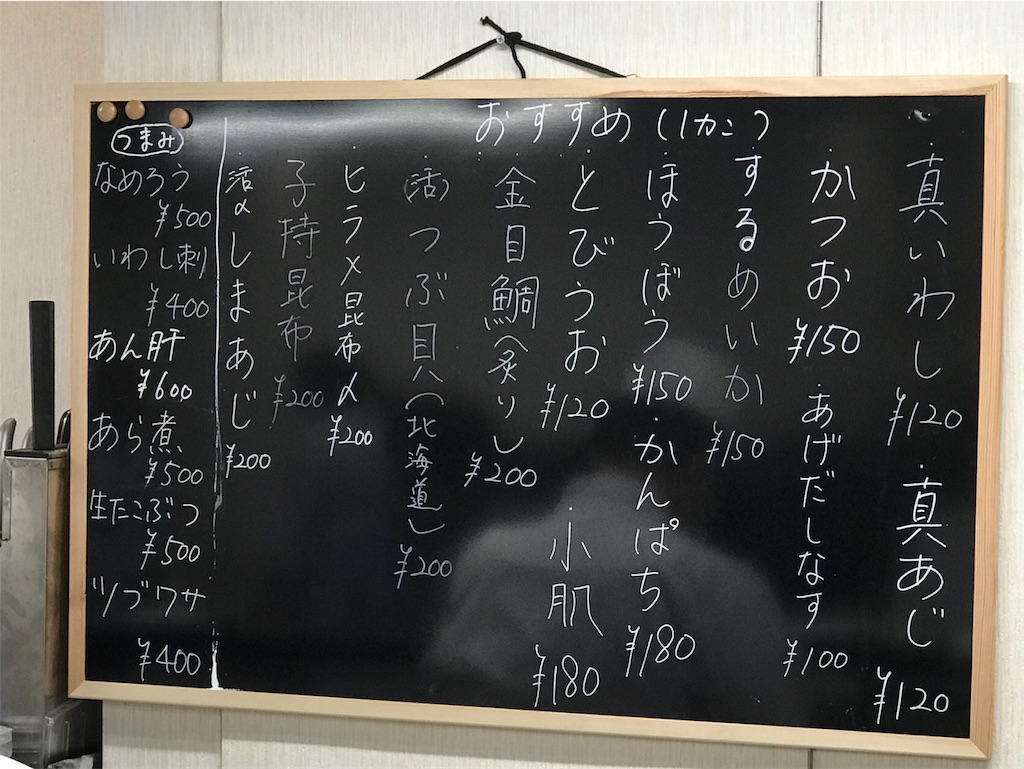 おすすめ (1カン)
・真いわし ¥120
・真あじ ¥120
・かつお ¥150
・あげだしなす ¥100
・するめいか ¥150
・ほうぼう ¥150
・かんぱち ¥180
・とびうお ¥120
・小肌 ¥180
・金目鯛(炙り) ¥200
・(活)つぶ貝(北海道) ¥200
・ヒラメ昆布〆 ¥200
・子持昆布 ¥200
・活〆しまあじ ¥200
つまみ
なめろう
¥500
いわし刺
¥400
あん肝
¥600
あら煮
¥500
生たこぶつ
¥500
ツブワサ
¥400